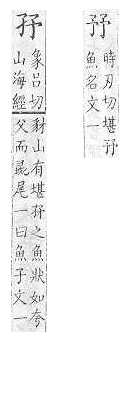 時刃切堪
魚名文一
象呂切
山海經
豺山有堪之魚狀如夸
父而彘尾一曰魚子文一